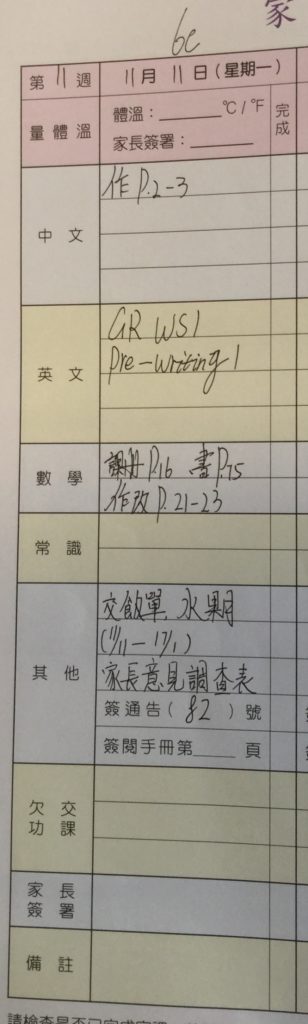 家
6e
第 11 週 11 月 11 日 (星期一)
量體溫 體溫：______ °C / °F 完成
家長簽署：______
中文 作 P.2-3
英文 GR WS1
Pre-writing 1
數學 課冊 P.16 書 P.75
作改 P.21-23
常識
其他 交飯單, 水果月
(11/11 - 17/1)
家長意見調查表
簽通告 ( 82 ) 號
簽閱手冊第____ 頁
欠交功課
家長簽署
備註